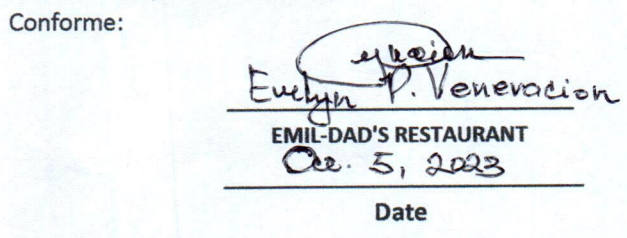 Conforme:
Evelyn P. Veneracion
EMIL-DAD'S RESTAURANT
5, 2023
Date